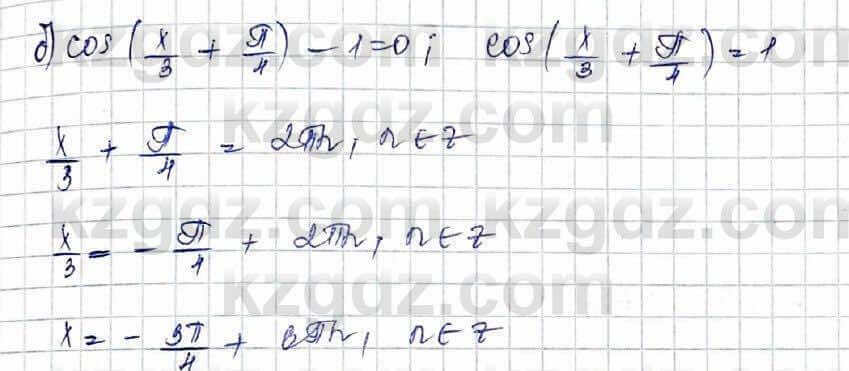 б) cos(x/3 + π/4) - 1 = 0; cos(x/3 + π/4) = 1
x/3 + π/4 = 2πn, n ∈ Z
x/3 = - π/4 + 2πn, n ∈ Z
x = - 3π/4 + 6πn, n ∈ Z
kzgdz.com kzgdz.com
kzgdz.com
kzgdz.com kzgdz.com
kzgdz.com